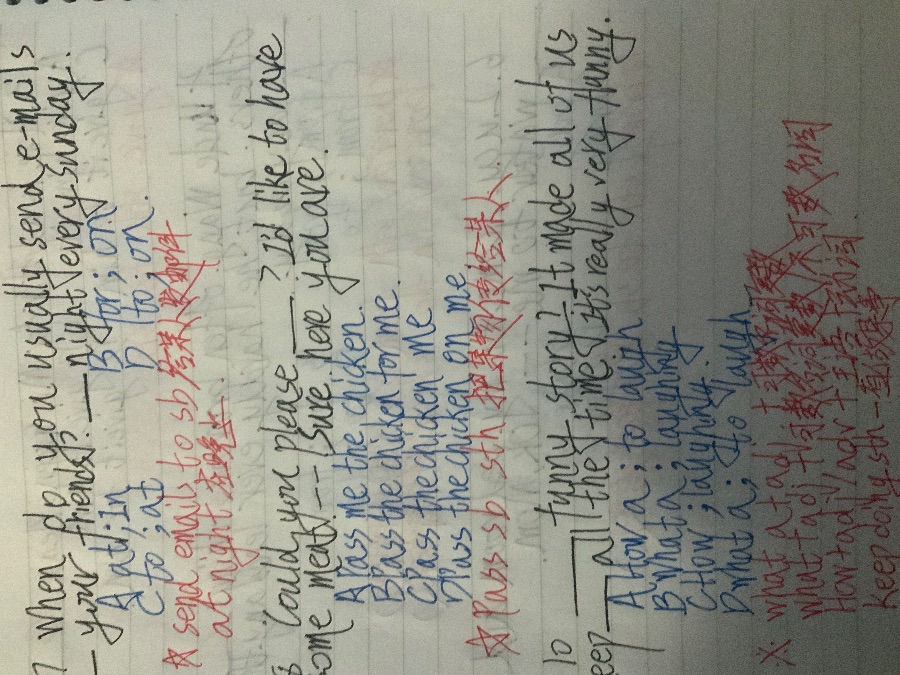 When do you usually send e-mails
— your friends? — night every sunday.
A at; in B for; on
C to; at D to; on.
☆ send emails to sb 给某人发邮件
at night 在晚上
Could you please ——? I'd like to have
some meat. -- Sure, here you are.
A Pass me the chicken.
B Pass the chicken for me.
C Pass the chicken me
D Pass the chicken on me
☆ Pass sb sth 把某物传给某人
10 —— funny story! It made all of us
keep — all the time, it's really very funny.
A How a; to laugh
B what a; laughing
C How; laughing.
D what a; to laugh
※ what a + adj +
what + adj + 可数名词复数/不可数名词
How + adj/adv + 主语 + 动词
keep doing sth 一直做某事